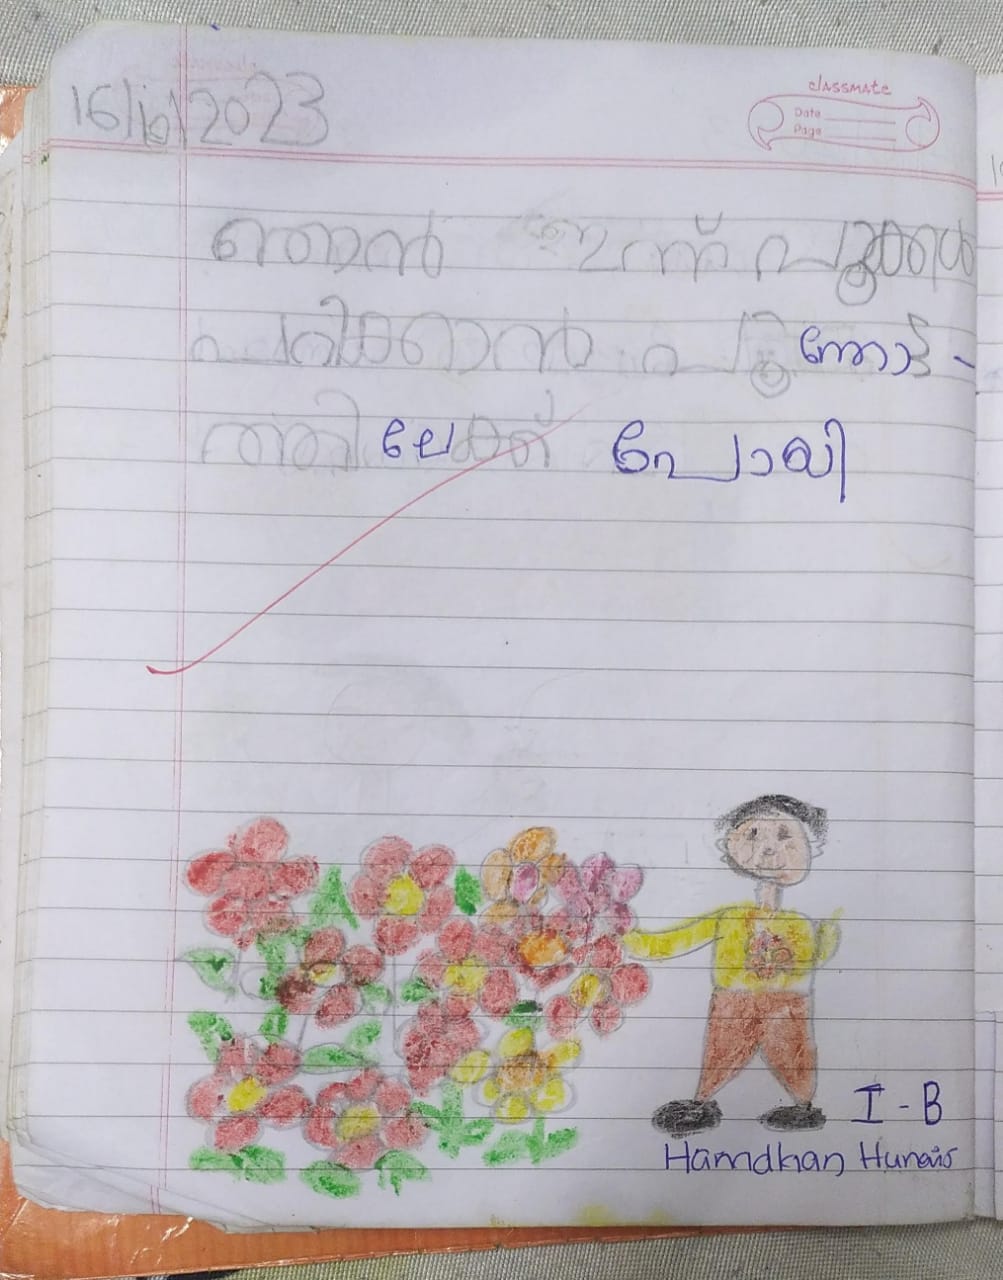 16/10/2023
classmate
Date
Page
ഞാൻ ഇന്ന് പൂക്കൾ
പറിക്കാൻ പൂന്തോട്-
ത്തിലേക്ക് പോയി
I - B
Hamdhan Hunais